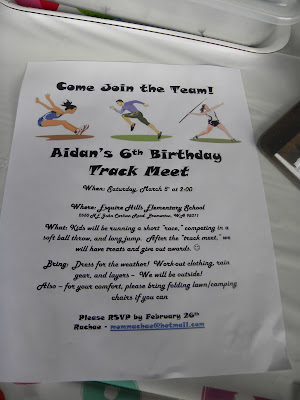 Come Join the Team!
Aidan's 6th Birthday
Track Meet
When: Saturday, March 5th at 2:00
Where: Esquire Hills Elementary School
What: Kids will be running a short "race," competing in a
soft ball throw, and long jump. After the "track meet," we
will have treats and give out awards. ☺
Bring: Dress for the weather! Work-out clothing, rain
gear, and layers – We will be outside!
Also – for your comfort, please bring folding lawn/camping
chairs if you can
Please RSVP by February 26th
Rachae – mommachae@hotmail.com